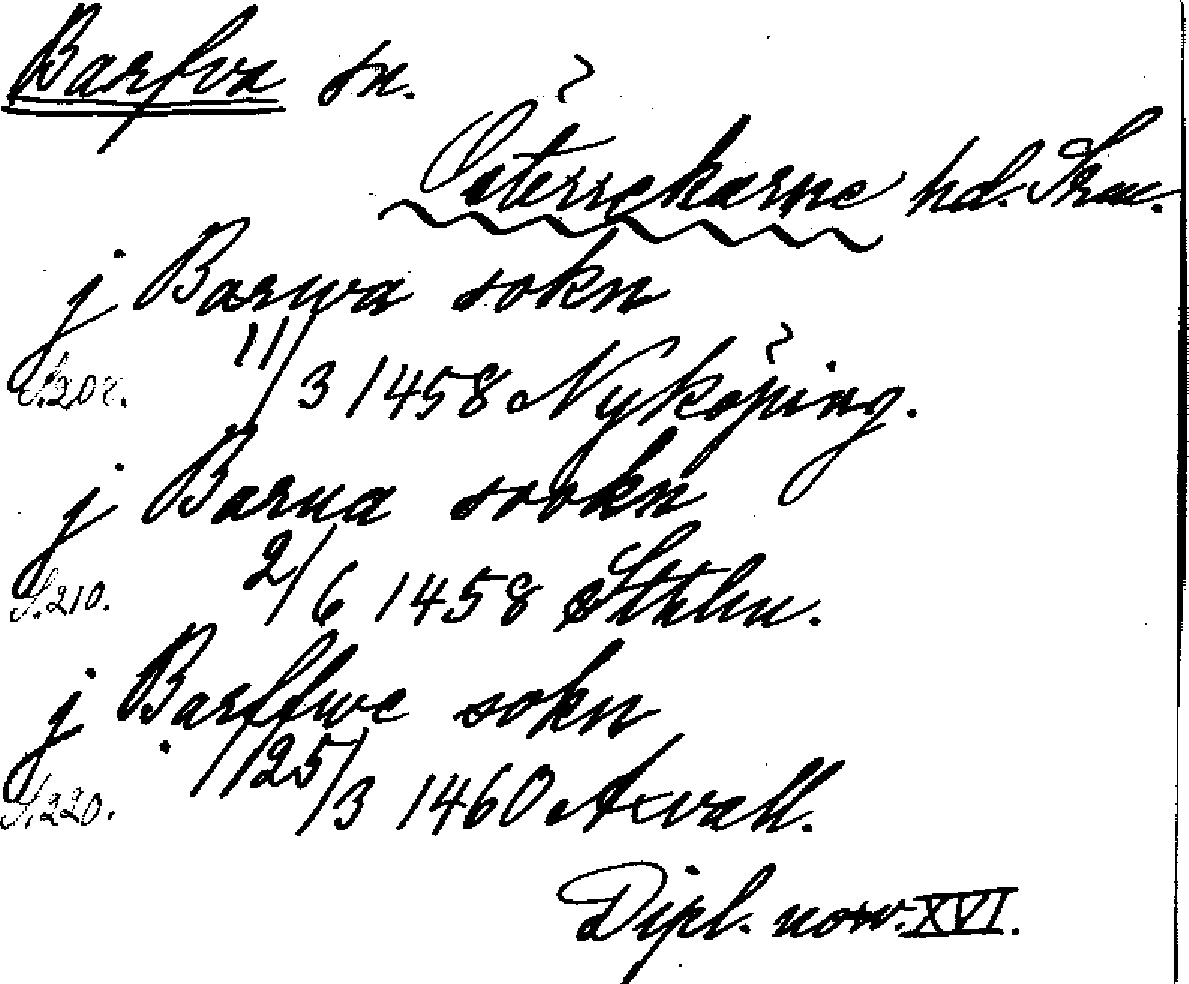 Barfva sn.
Österrekarne hd. Srm.
j Barwa sokn
S.208. 11/3 1458 Nyköping.
j Barua sookn
S.210. 2/6 1458 Sthlm.
j Barffwe sokn
S.220. 25/3 1460 Axvall.
Dipl. norv. XVI.